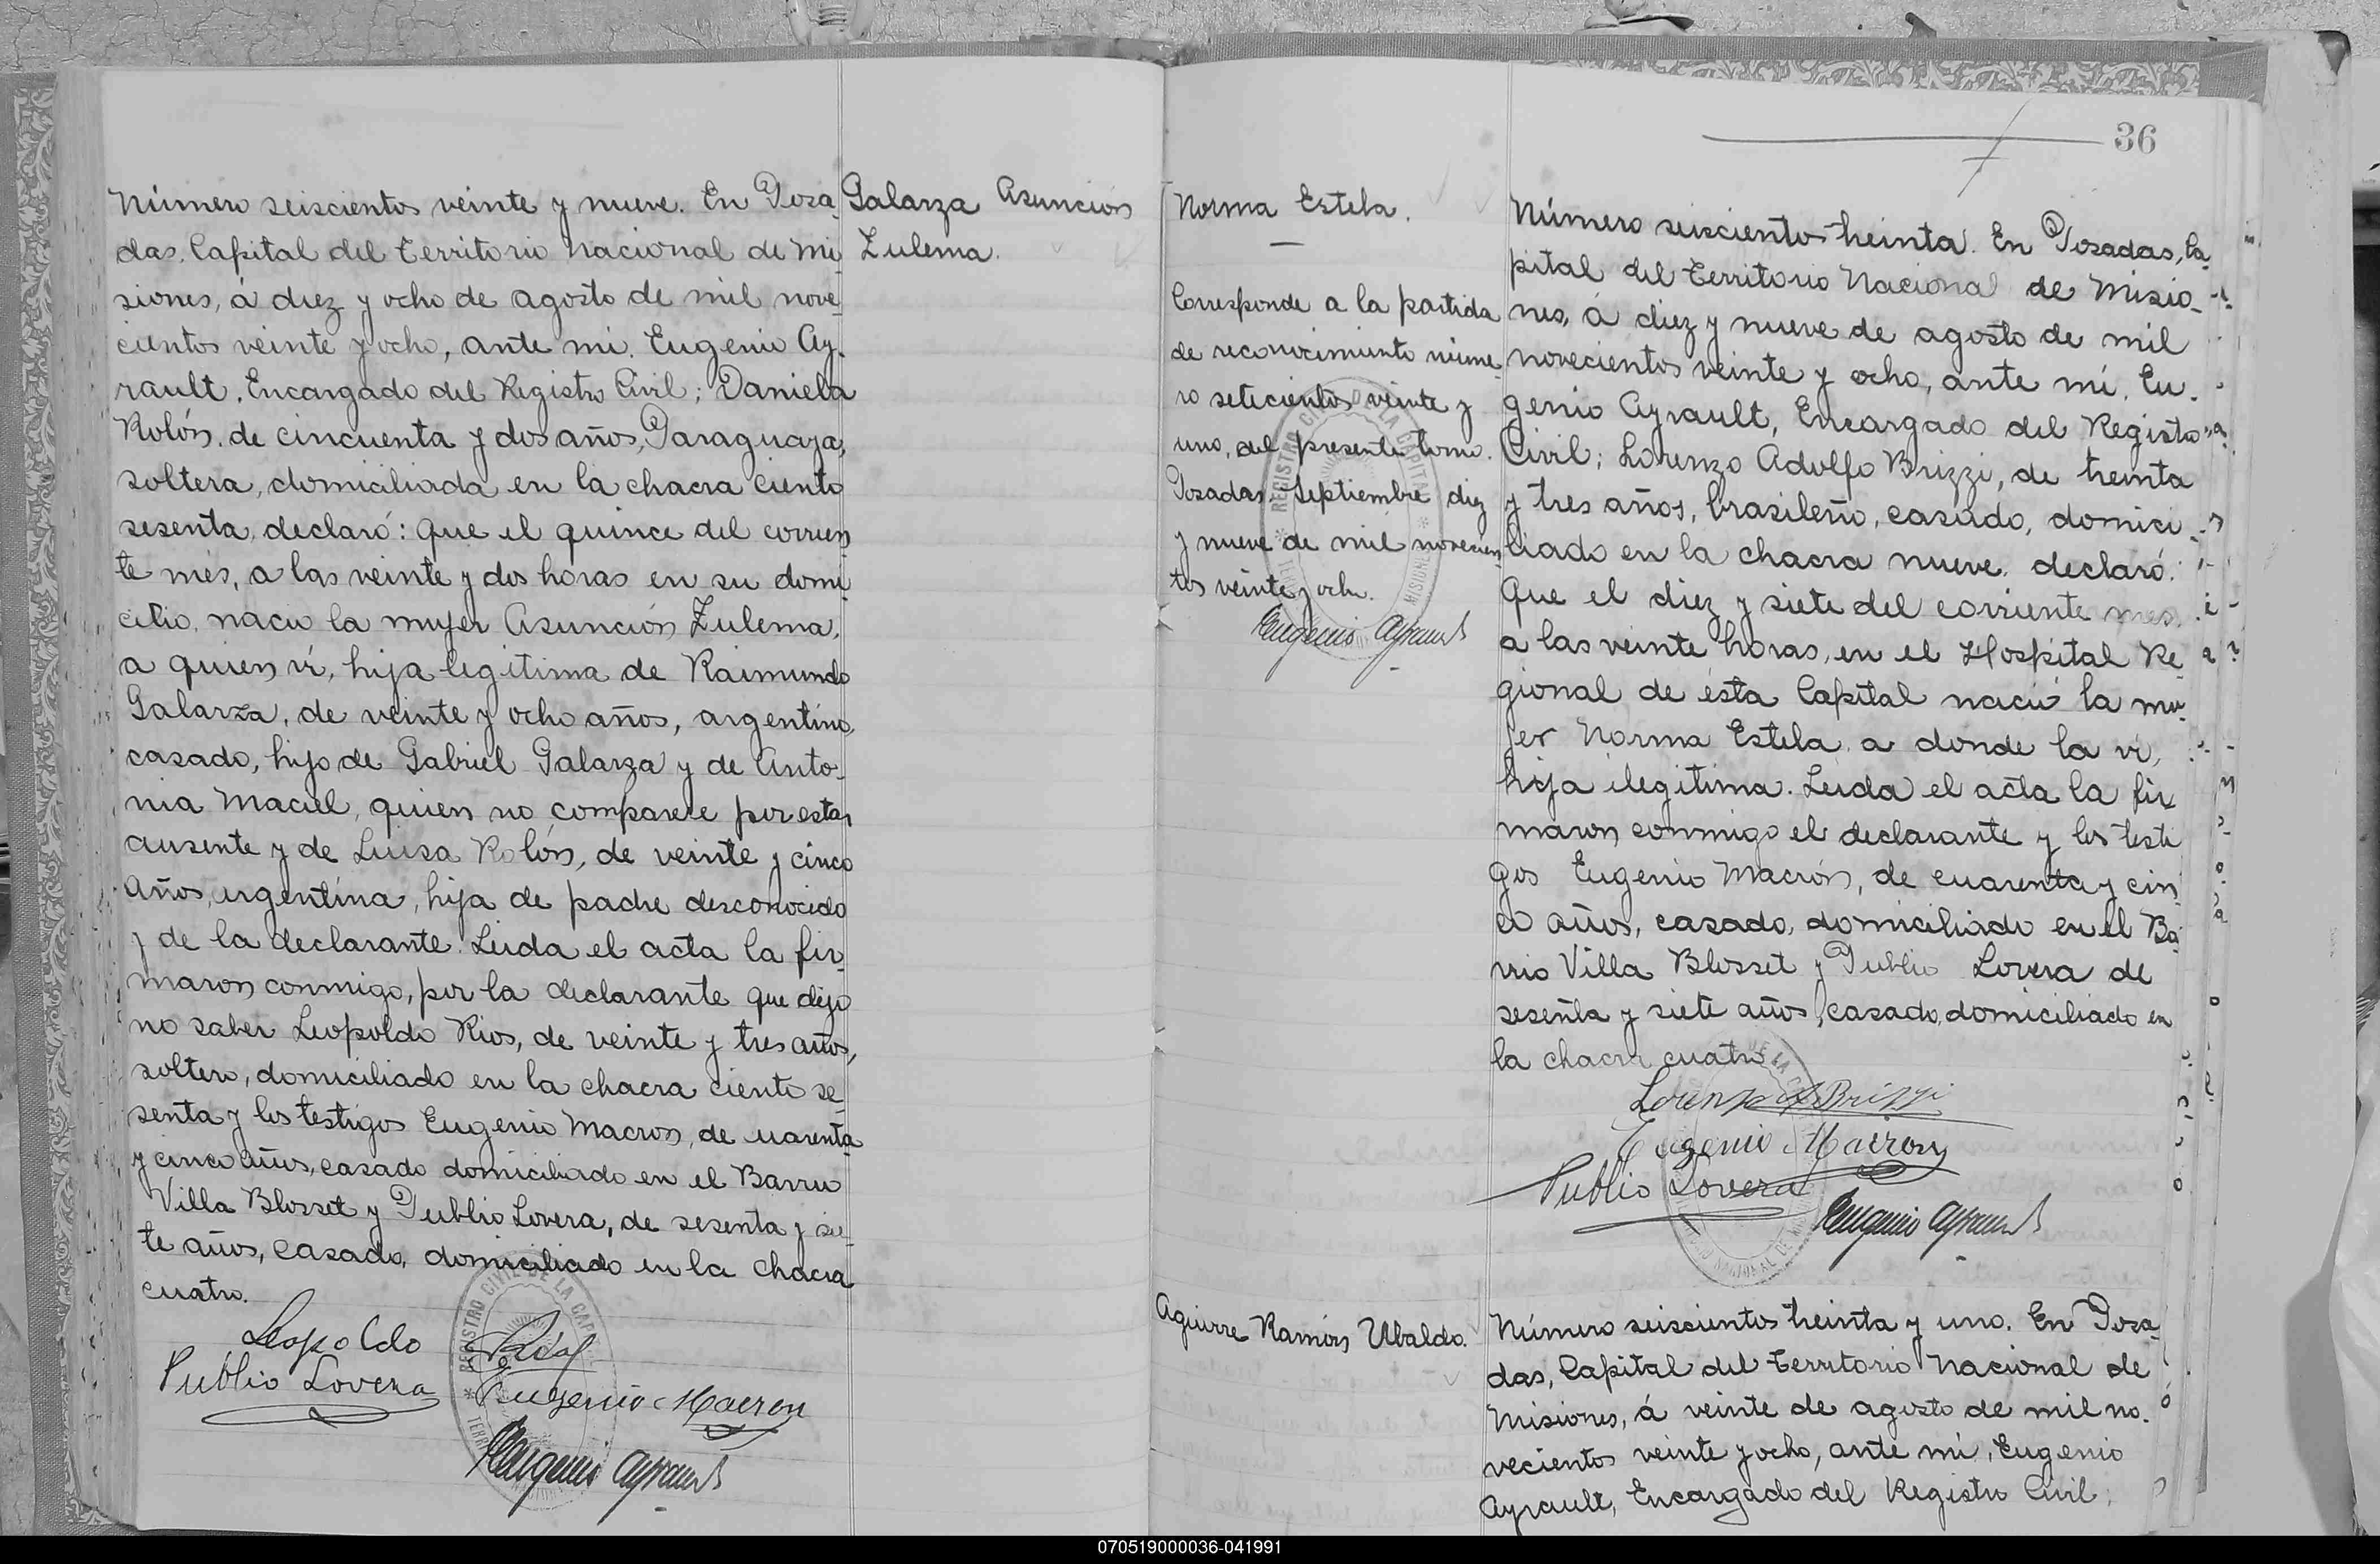 Número seiscientos veinte y nueve. En Posa-
das, Capital del Territorio Nacional de Mi-
siones, á diez y ocho de agosto de mil nove-
cientos veinte y ocho, ante mi. Eugenio Ay-
rault, Encargado del Registro Civil; Daniela
Rolón, de cincuenta y dos años, Paraguaya,
soltera, domiciliada en la chacra ciento
sesenta, declaró: Que el quince del corrien-
te mes, a las veinte y dos horas en su domi-
cilio, nacio la mujer Asunción Zulema,
a quien ví, hija legitima de Raimundo
Galarza, de veinte y ocho años, argentino,
casado, hijo de Gabriel Galarza y de Anto-
nia Maciel, quien no comparece por estar
ausente y de Luisa Rolón, de veinte y cinco
años, argentina, hija de padre desconocido
y de la declarante. Leida el acta la fir-
maron conmigo, por la declarante que dijo
no saber Leopoldo Rios, de veinte y tres años,
soltero, domiciliado en la chacra ciento se-
senta y los testigos Eugenio Macron, de uarenta
y cinco años, casado domiciliado en el Barrio
Villa Blosset y Publio Lovera, de sesenta y sie-
te años, casado, domiciliado en la chacra
cuatro.
Leopoldo Rios
Publio Lovera
Eugenio Macron
Eugenio Ayrault
REGISTRO CIVIL DE LA CAPITAL
Galarza Asunción
Zulema.
36
Norma Estela.
Corresponde a la partida
de reconocimiento núme-
ro setecientos veinte y
uno, del presente tomo.
Posadas, Septiembre diez
y nueve de mil novecien-
tos veinte y ocho.
Eugenio Ayrault
REGISTRO CIVIL DE LA CAPITAL
Número seiscientos treinta. En Posadas, Ca-
pital del Territorio Nacional de Misio-
nes, á diez y nueve de agosto de mil
novecientos veinte y ocho, ante mí, Eu-
genio Ayrault, Encargado del Registro
Civil; Lorenzo Adolfo Brizzi, de treinta
y tres años, brasileño, casado, domici-
liado en la chacra nueve, declaró:
Que el diez y siete del corriente mes,
a las veinte horas, en el Hospital Re-
gional de ésta Capital nació la mu-
jer Norma Estela, a donde la ví,
hija ilegítima. Leida el acta la fir-
maron conmigo el declarante y los testi-
gos Eugenio Macrón, de cuarenta y cin-
co años, casado, domiciliado en el Ba-
rrio Villa Blosset y Publio Lovera de
sesenta y siete años, casado, domiciliado en
la chacra cuatro
Lorenzo A Brizzi
Eugenio Macron
Publio Lovera
Eugenio Ayrault
Aguirre Ramón Ubaldo.
Número seiscientos treinta y uno. En Posa-
das, Capital del Territorio Nacional de
Misiones, á veinte de agosto de mil no-
vecientos veinte y ocho, ante mí, Eugenio
Ayrault, Encargado del Registro Civil;
070519000036-041991